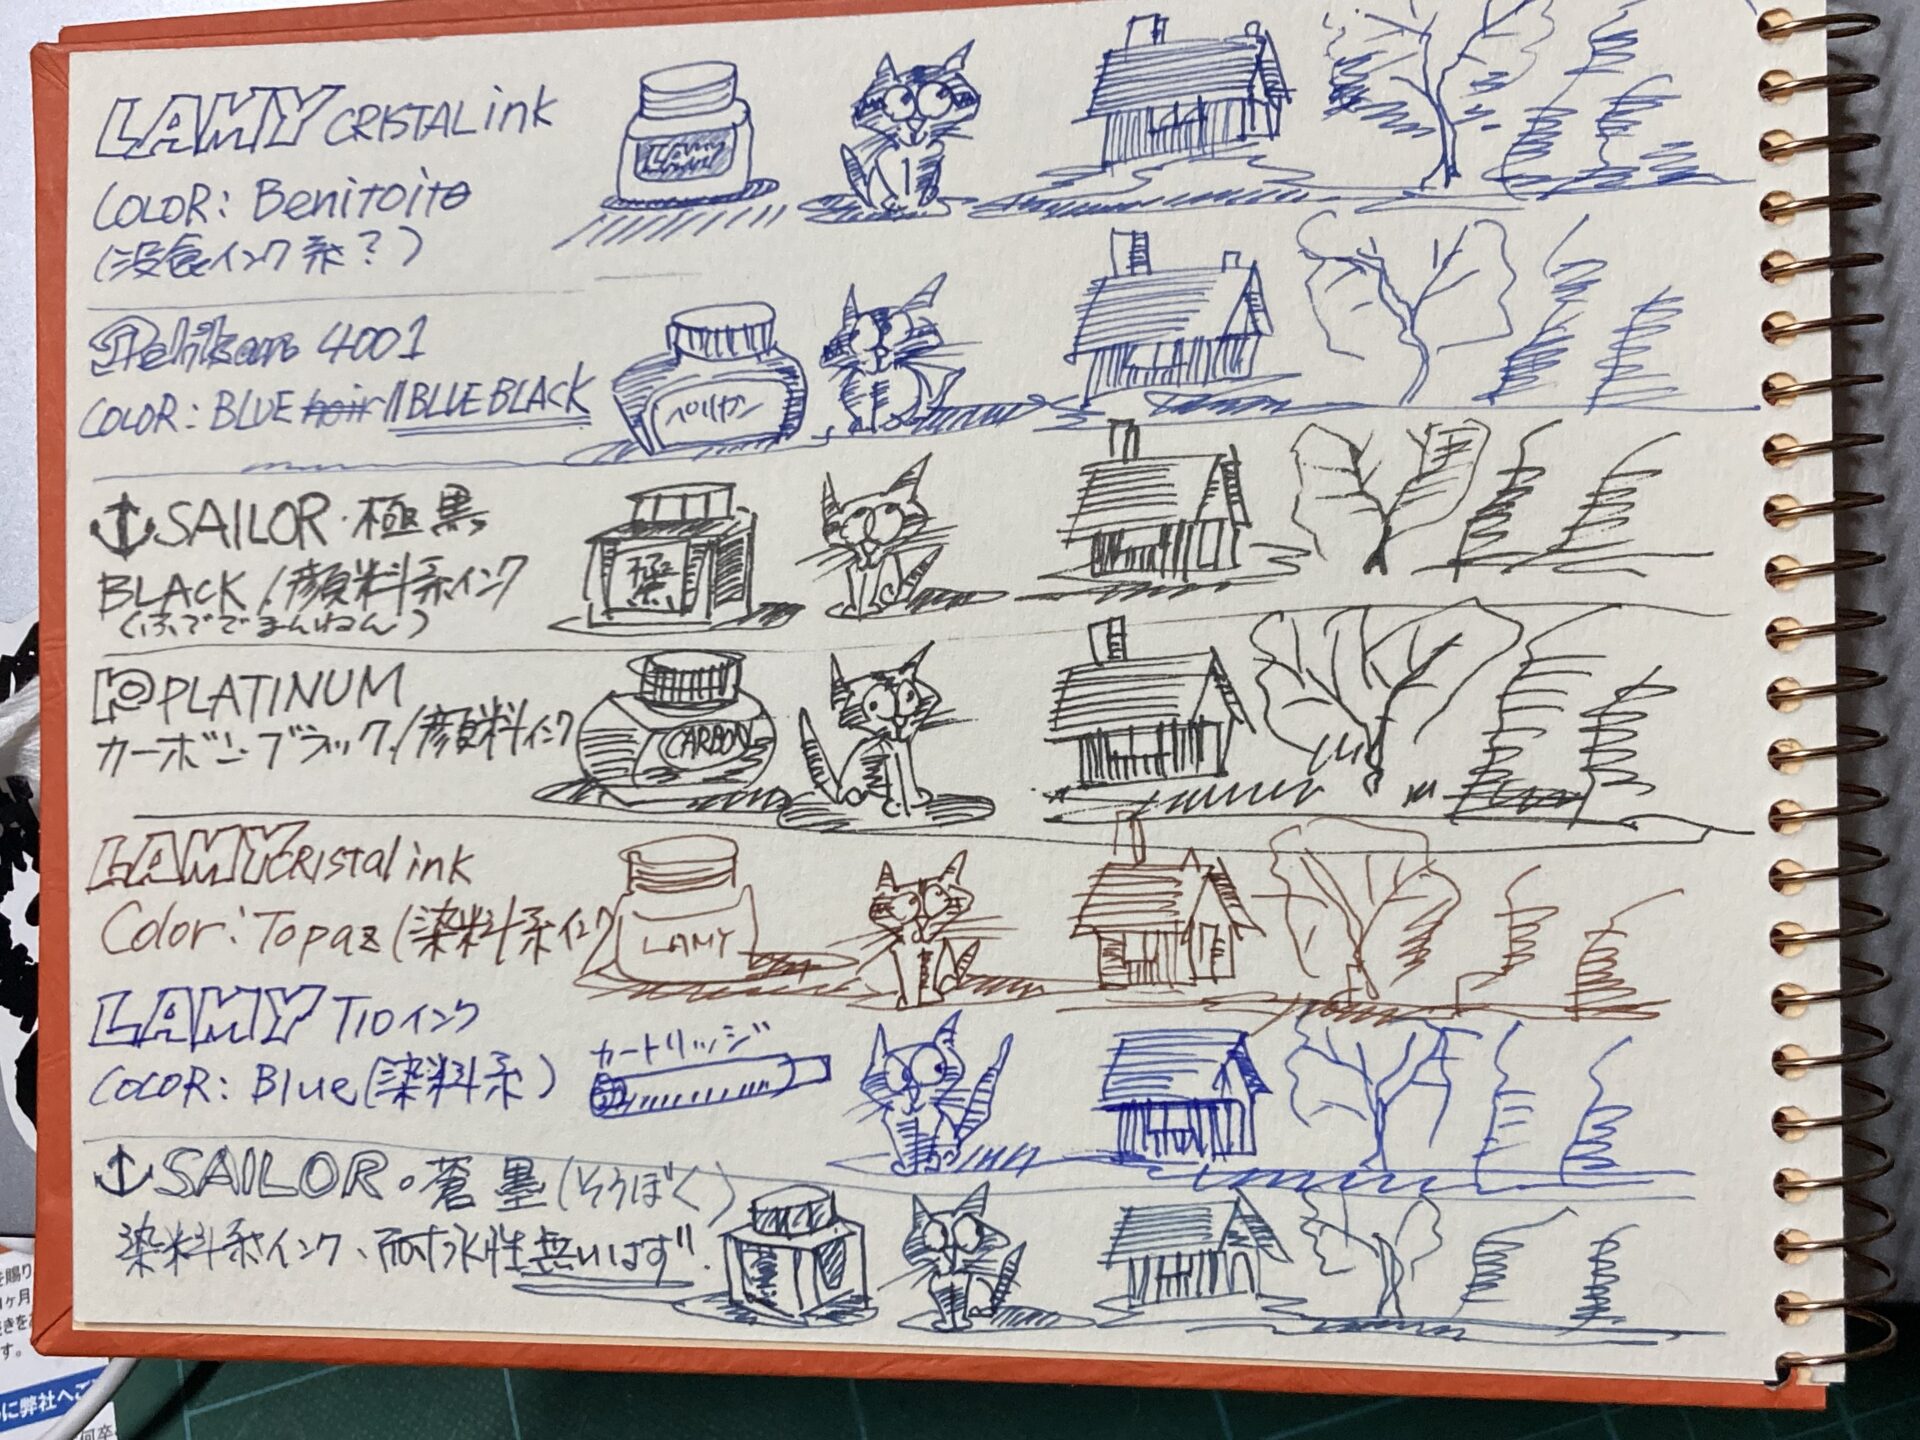 LAMY CRISTAL ink
COLOR: Benitoite
(没食インク系?)
LAMY
Pelikan 4001
COLOR: BLUE noir//BLUE BLACK
ペリカン
SAILOR・極黒
BLACK/顔料系インク
(ふででまんねん)
極黒
PLATINUM
カーボンブラック/顔料インク
CARBON
LAMY CRIstal ink
Color: Topaz (染料系インク
LAMY
LAMY T10インク
COLOR: Blue(染料系)
カートリッジ
SAILOR・蒼墨(そうぼく)
染料系インク、耐水性無いはず.
を賜り
に弊社へご